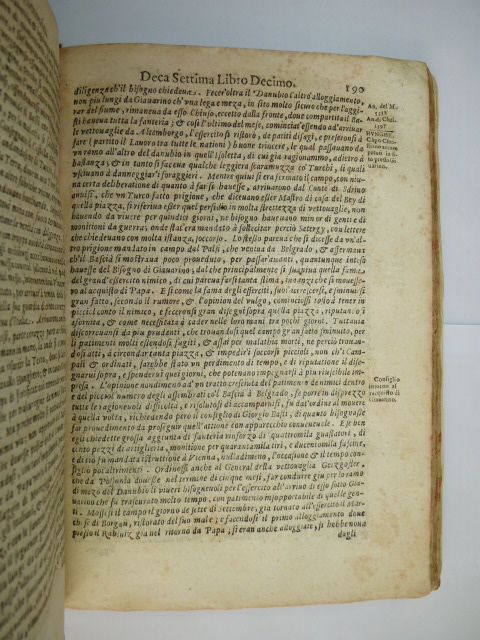 Deca Settima Libro Decimo. 190
diligenza ch'il bisogno chiedeua. Fecer'oltra il Danubio l'altro alloggiamento,
non più lungi da Giauarino ch'vna lega e meza, in sito molto sicuro che per l'aggi-
rar del fiume, rimaneua da esso Chiuso, eccetto dalla fronte, doue compartita il Ba-
stì haueua tutta la fanteria; & così l'vltimo del mese, cominciat'essendo ad arriuar
le vettouaglie da Altemborgo, l'essercito si ristorò, de patiti disagi, e prestonsi à
fare (partito il Lauoro tra tutte le nationi) buone trincee, le quali passauano da
vn ramo all'altro del danubio in quell'Isoletta, di cui già ragionammo, adietro à
bastanza; & in tanto si faceua qualche leggiera scaramuzza co' Turchi, li quali
vsciuano à danneggiar' i foraggieri. Mentre quiui si era il campo, con niu-
na certa deliberatione di quanto à far si hauesse, arriuarono dal Conte di Sdrino
auuisi, che vn Turco fatto prigione, che diceuano esser Mastro di casa del Bey di
quella piazza, si riferiua esser quel presidio in molta strettezza di vettouaglie, non
hauendo da viuere per quindici giorni, ne bisogno haueuano minor di genti e di
monitioni da guerra; onde stat'era mandato à sollecitar perciò
che chiedeuano con molta istanza, soccorso. Lo stesso parea che si dicesse da vn'al-
tro prigione mandato in campo dal Palfi, che veniua da Belgrado, & affermaua
ch'il Bascià si mostraua poco proueduto, per passar'auanti, quantunque inteso
hauesse del Bisogno di Giauarino, dal che principalmente
del grand'essercito nimico, di cui parcua
uo al acquisto di Papa. E sì come la fama degl'esserciti, suol'accrescersi, e sminuir
gran fatto, secondo il rumore, & l'opinion del vulgo, cominciossi tosto à tener in
picciol conto il nimico, e
aforrita, & come necessitata à cader nelle loro mani tra pochi giorni. Tuttauia
discorreuano i più prudenti, che trouandosi quel campo gran fatto sminuito, per
li patimenti molti essendosi fugiti, & assai per malathia morti, ne perciò trouan-
dosi atti, à circondar tanta piazza, & impedir'i soccorsi piccioli, non ch'i Campa-
li & ordinati, sarebbe stato vn perdimento di tempo, e di riputatione il dise-
gnarui sopra, essendo che non poteuano impegnarsi à più riuscibile im-
presa. L'opinione nondimeno
e dei piccioi numero degli assembrati col Bascià à Belgrado,
tutte le ragioneuoli difficoltà, e risoluessi di accamparsi, fu dal commune voler à
quella volta, richiedendo però il consiglio di Giorgio Basti, di quanto bisognasse
far prouedimento da proseguir quell'attione con apparecchio conueneuole. E se ben
egli chiedette grossa aggiunta di fanteria rinforzo di quattromila guastatori, di
cento pezzi di artiglieria, monitioni per quarantamila tiri, e ducentomila fascine,
di ciò fu mandata à Vienna, nulladimeno, l'occasione & il tempo con-
sigliò poi altrimenti. Ordinossi anche al General della vettouaglia
che da Possonia douesse nel termine di cinque mesi, far condurre giù per lo ramo
di mezo del Danubio li viueri bisogneuoli per l'essercito all'arriuo di esso sotto Gia-
uarino che fu trascurato molto tempo, con patimento insopportabile di quelle gen-
ti. Mossesi il campo il giorno de sette di Settembre, già tornato all'essercito il Mar-
chese di Borgau, ristorato del suo male; e facendosi il primo alloggiamento doue
presso il gia nel ritorno da Papa; si eran anche alloggiate, si hebbe nona
dagli
An. del M.
An. di Chri.
1597
Consiglio
intorno al
acquisto di
Giauarino.